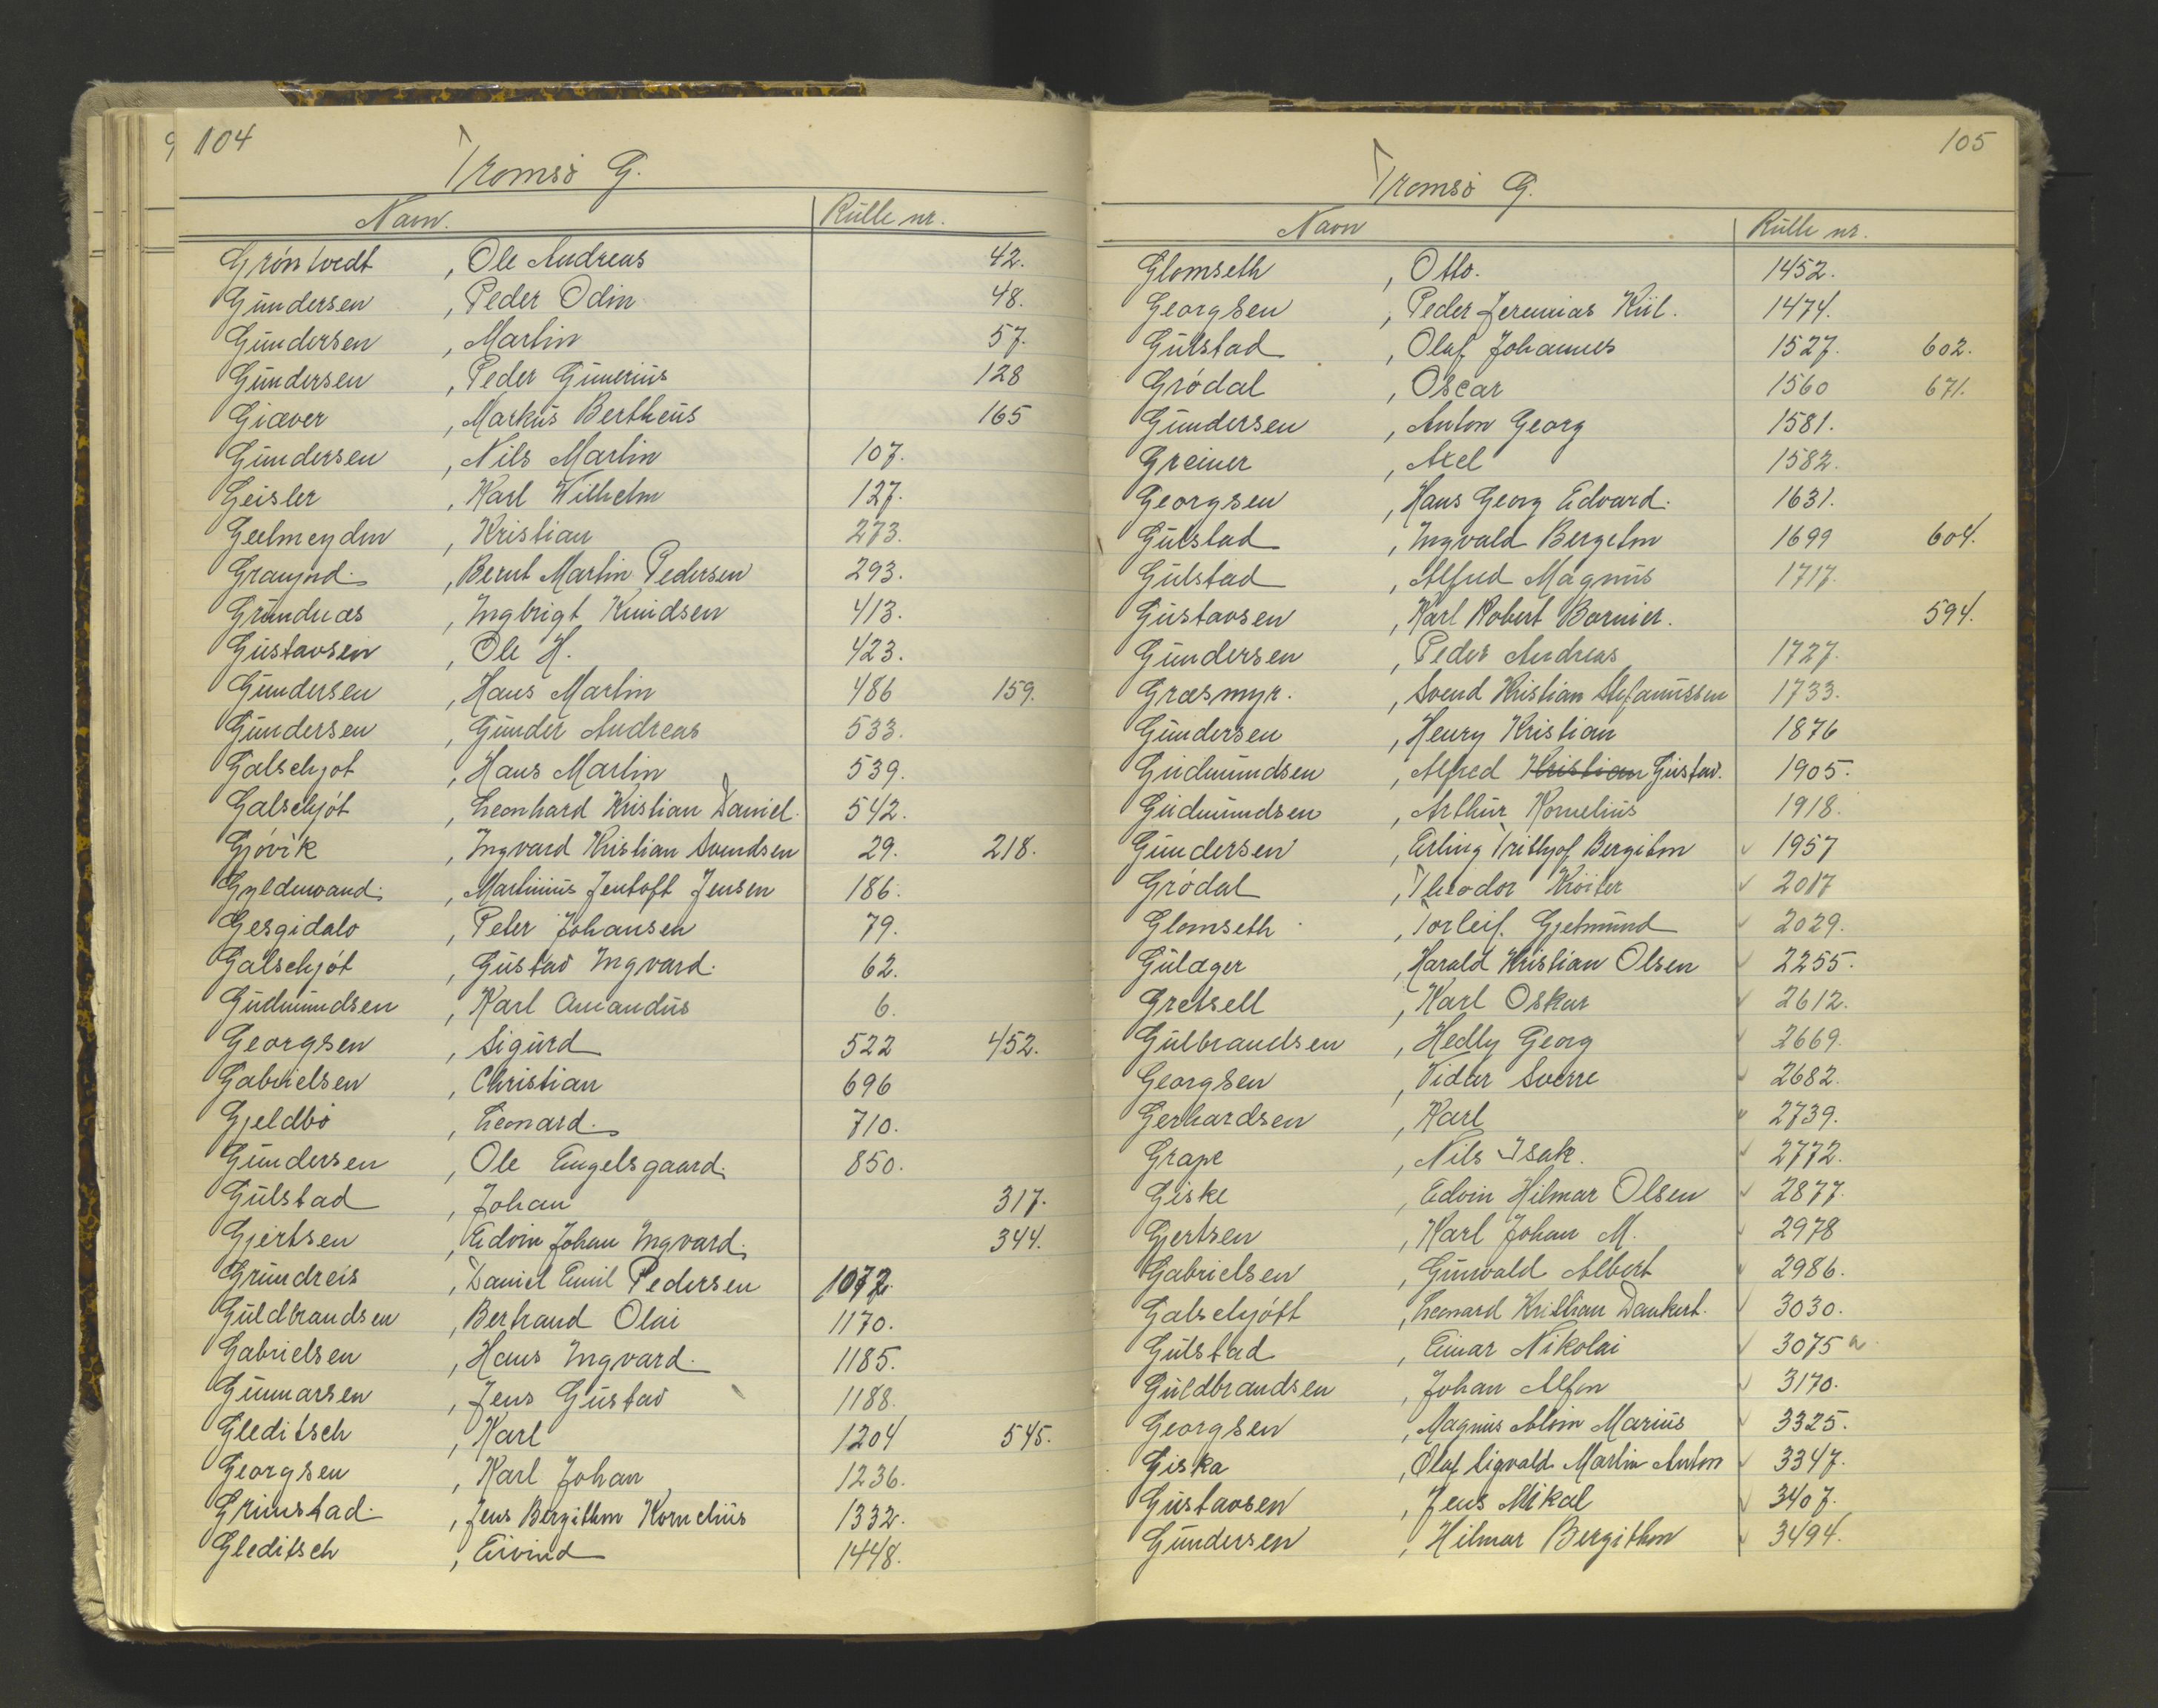 9
104
Tromsö G.
Navn. Rulle nr.
Gröntvedt , Ole Andreas 42.
Gundersen , Peder Odin 48.
Gundersen , Martin 57.
Gundersen , Peder Gunerius 128
Giæver , Markus Bertheus 165
Gundersen , Nils Martin 107.
Geisler , Karl Wilhelm 127.
Geelmeyden , Kristian 273.
, Bernt Martin Pedersen 293.
Grundnæs , Ingbrigt Knudsen 413.
Gustavsen , Ole H. 423.
Gundersen , Hans Martin 486 159.
Gundersen , Gunder Andreas 533.
Galschjot , Hans Martin 539.
Galschjót , Leonhard Kristian Daniel. 542.
Gjóvik , Ingvard Kristian Svendsen 29. 218.
Gyldenvand. , Martinius Jentoft Jensen 186.
Gesgidalo , Peter Johansen 79.
Galschjót , Gustav Ingvard. 62.
Gudmundsen , Karl Amandus 6.
Georgsen , Sigurd 522 452.
Gabrielsen , Christian 696
Gjeldbö , Leonard. 710.
Gundersen , Ole Engelsgaard. 850.
Gulstad , Johan 317.
Gjertsen , Edvin Johan Ingvard. 344.
Grundreis , Daniel Emil Pedersen 1072.
Guldbrandsen , Bertrand Olai 1170.
Gabrielsen , Hans Ingvard. 1185.
Gunnarsen , Jens Gustav 1188.
Gleditsch , Karl 1204 545.
Georgsen , Karl Johan 1236.
Grimstad. , Jens Bergithon Kornelius 1332.
Gleditsch , Eivind 1448.
105
Tromsö G.
Navn Rulle nr.
Glomseth , Otto. 1452.
Georgsen , Peder Jeremias Kiil. 1474.
Gulstad , Olaf Johannes 1527. 602.
Gródal , Oscar 1560 671.
Gundersen , Anton Georg 1581.
Greiner , Axel 1582.
Georgsen , Hans Georg Edvard. 1631.
Gulstad , Ingvald Bergeton 1699 604.
Gulstad , Alfred Magnus 1717.
Gustavsen , Karl Robert Bornier. 594.
Gundersen , Peder Andreas 1727.
Græsmyr. , Svend Kristian Stefanussen 1733.
Gundersen , Henry Kristian 1876
Gudmundsen , Alfred Kristian Gustav. 1905.
Gudmundsen , Arthur Kornelius 1918.
Gundersen , Erling Trithjof Bergiton ✓ 1957
Gródal , Theodor Kröiter ✓ 2017
Glomseth , Torleif Gjetmund ✓ 2029.
Gulæger , Harald Kristian Olsen ✓ 2255.
Gretsell , Karl Oskar ✓ 2612.
Gulbrandsen , Hedly Georg ✓ 2669.
Georgsen , Vidar Sverre ✓ 2682.
Gerhardsen , Karl ✓ 2739.
Grape , Nils Isak. ✓ 2772.
Giske , Edvin Hilmar Olsen ✓ 2877.
Gjertsen , Karl Johan M. ✓ 2978
Gabrielsen , Gunvald Albert ✓ 2986.
Galschjótt , Leonard Kristian Dankert. ✓ 3030.
Gulstad , Einar Nikolai ✓ 3075 a
Guldbrandsen , Johan Alfon ✓ 3170.
Georgsen , Magnus Alvin Marius ✓ 3325.
Giska , Olaf Sigvald Martin Anton ✓ 3347.
Gustavsen , Jens Mikal ✓ 3407.
Gundersen , Hilmar Bergithon ✓ 3494.